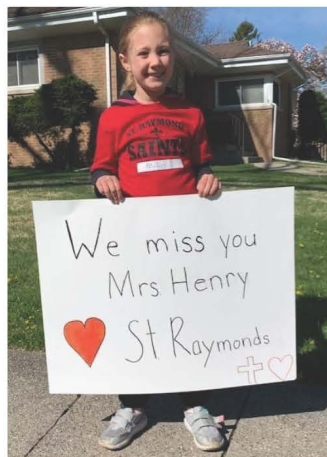 ST RAYMOND
SAINTS
We miss you
Mrs. Henry
St Raymonds